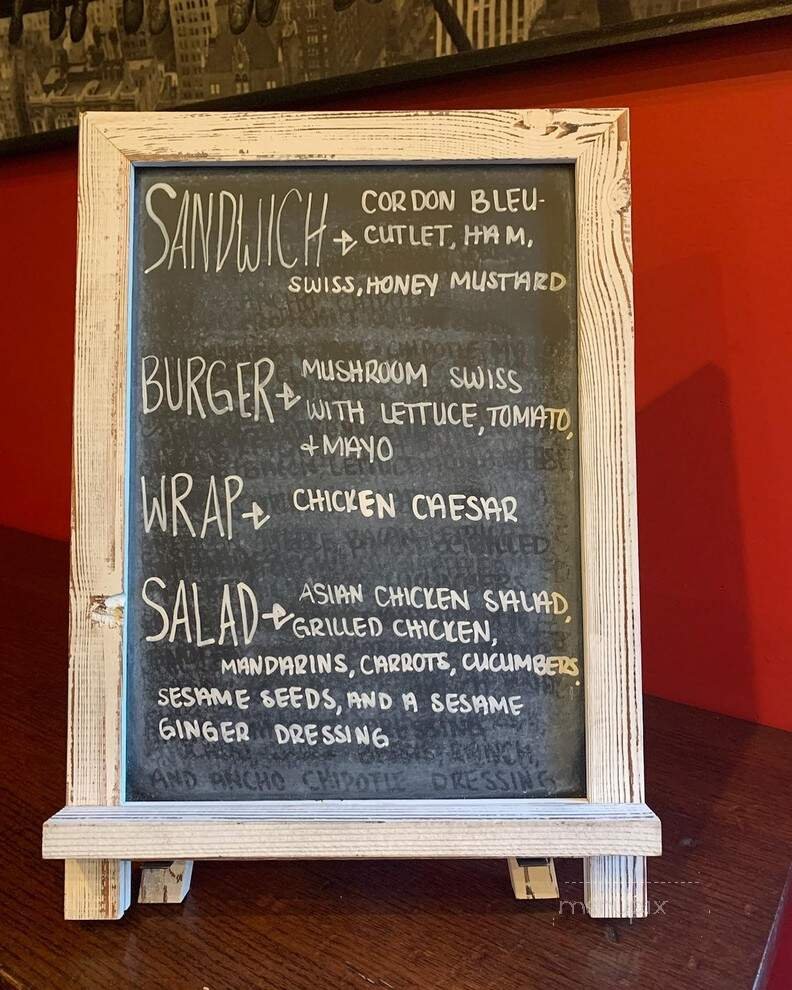 SANDWICH → CORDON BLEU-
CUTLET, HAM,
SWISS, HONEY MUSTARD
BURGER → MUSHROOM SWISS
WITH LETTUCE, TOMATO,
+ MAYO
WRAP → CHICKEN CAESAR
SALAD → ASIAN CHICKEN SALAD,
GRILLED CHICKEN,
MANDARINS, CARROTS, CUCUMBERS,
SESAME SEEDS, AND A SESAME
GINGER DRESSING
AND ANCHO CHIPOTLE DRESSING